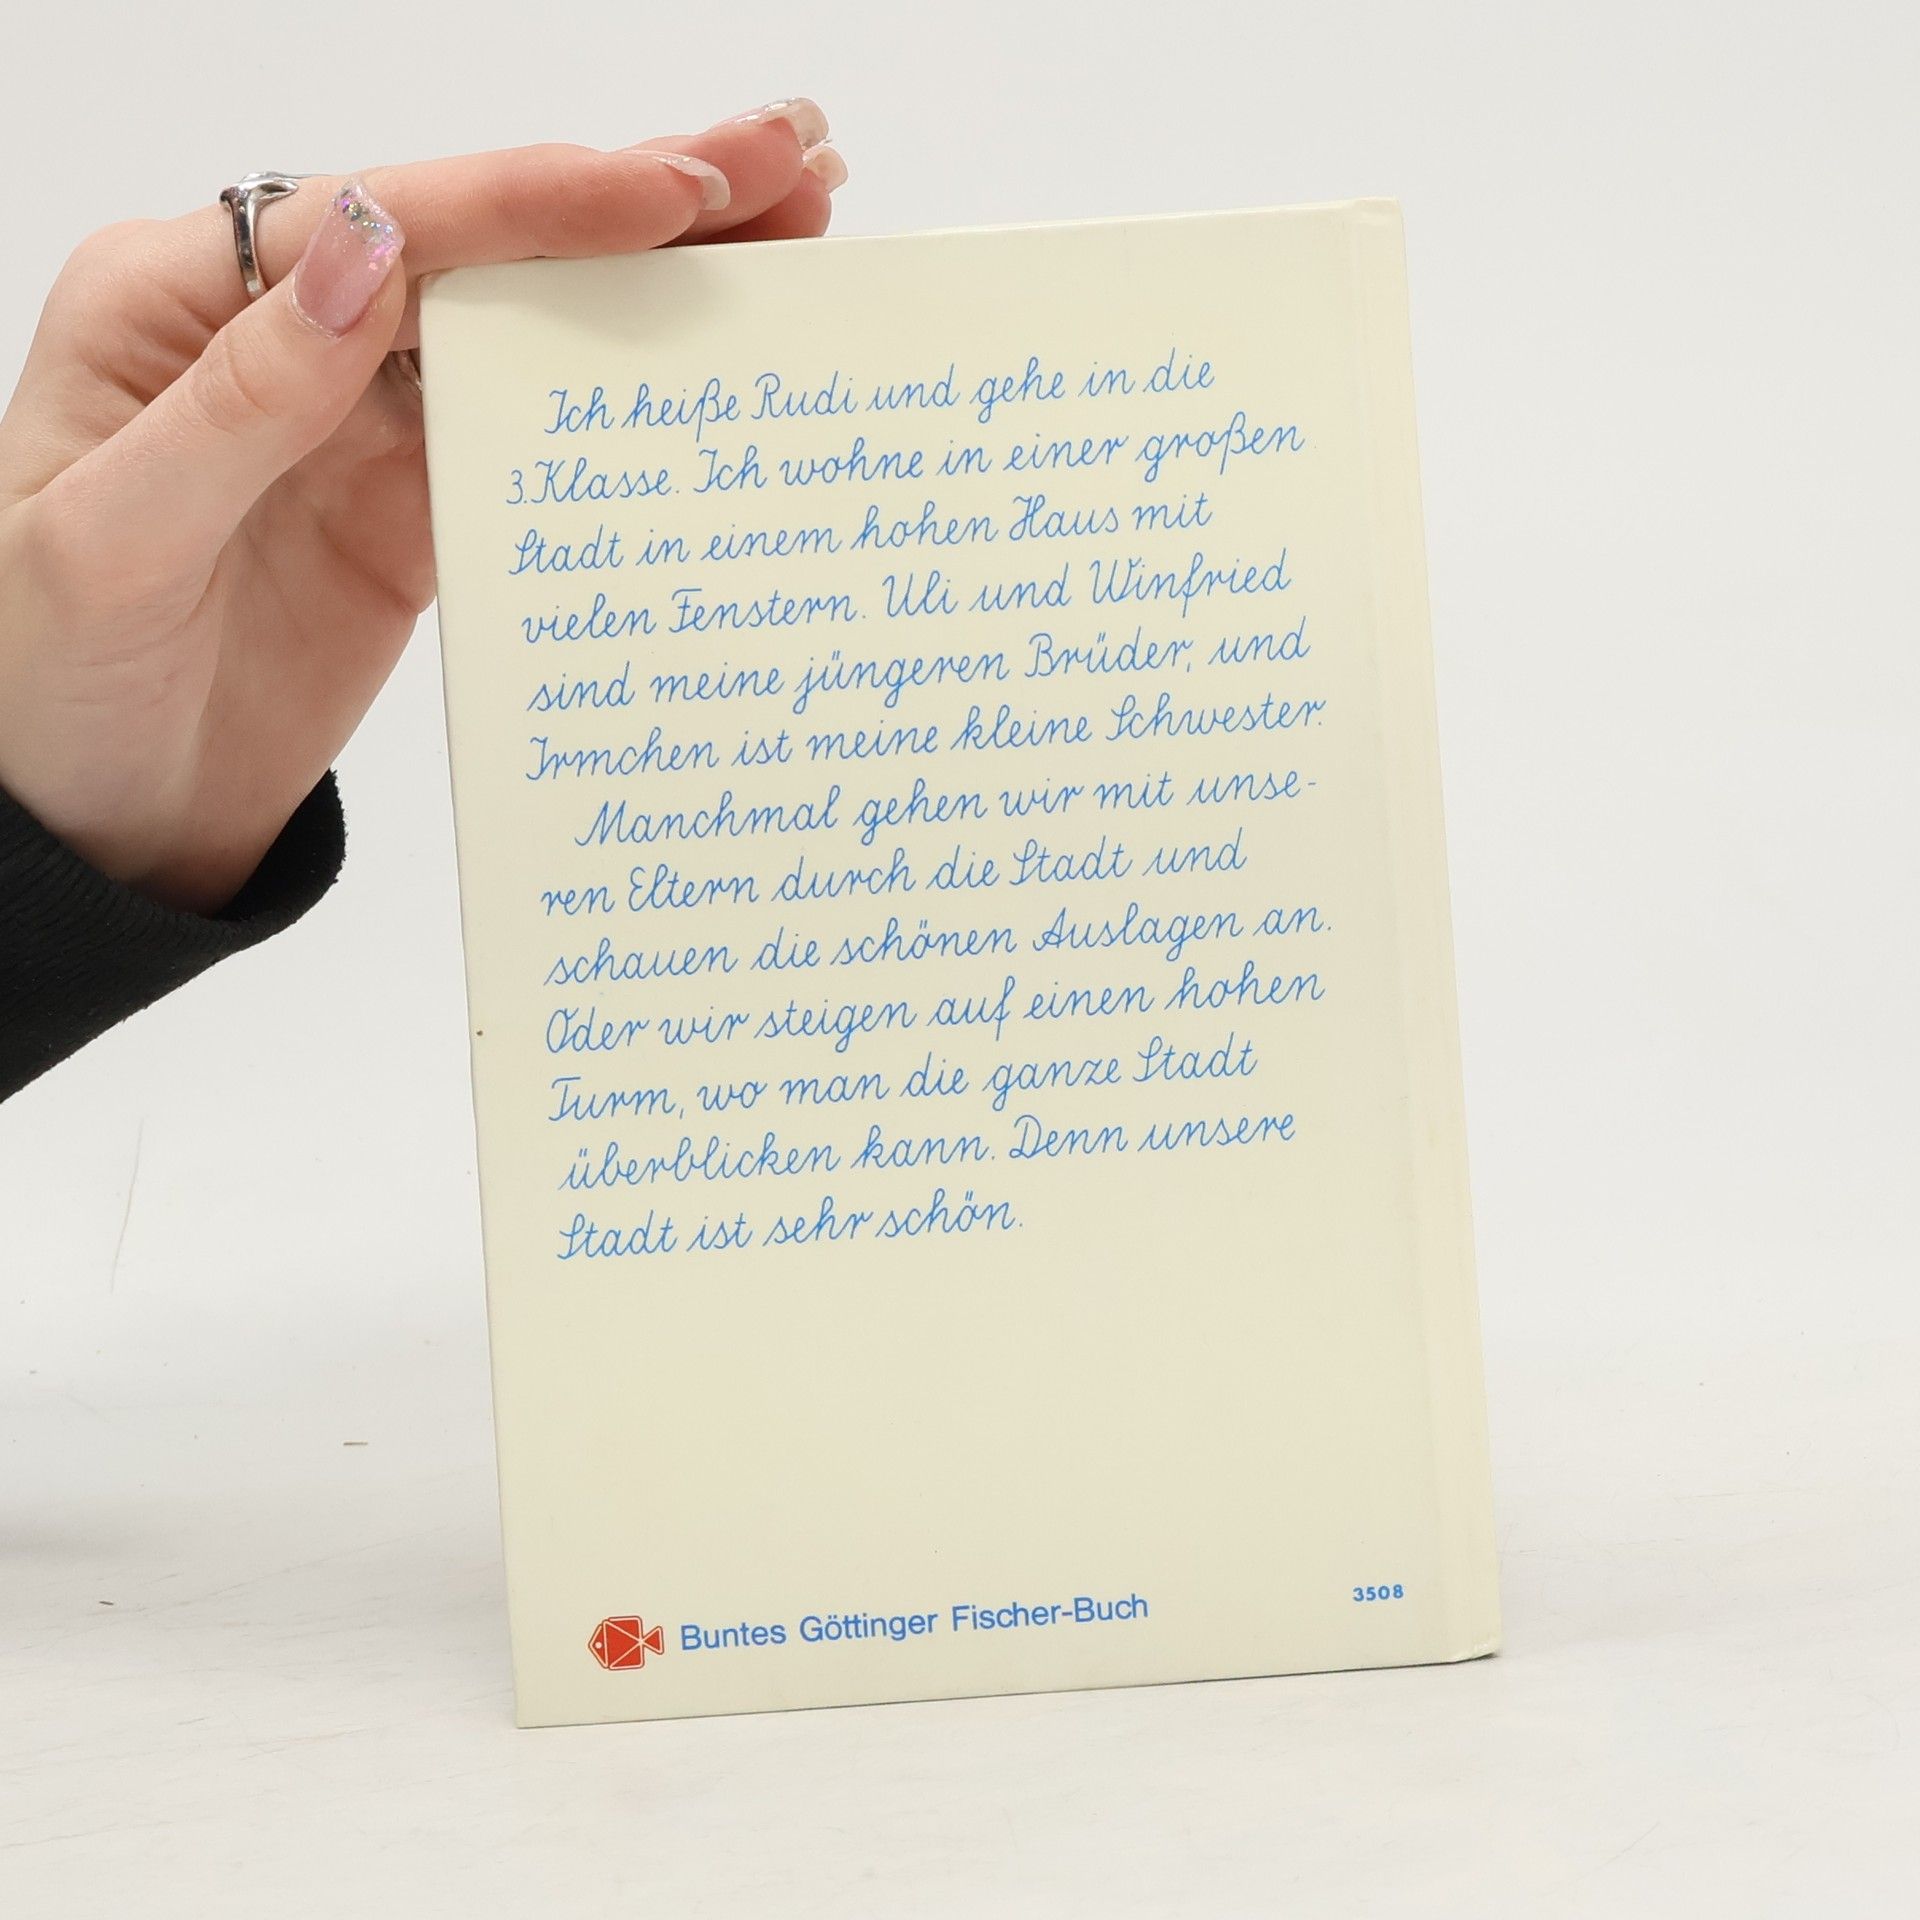 Ich heiße Rudi und gehe in die
3. Klasse. Ich wohne in einer großen
Stadt in einem hohen Haus mit
vielen Fenstern. Uli und Winfried
sind meine jüngeren Brüder, und
Irmchen ist meine kleine Schwester.
Manchmal gehen wir mit unse-
ren Eltern durch die Stadt und
schauen die schönen Auslagen an.
Oder wir steigen auf einen hohen
Turm, wo man die ganze Stadt
überblicken kann. Denn unsere
Stadt ist sehr schön.
Buntes Göttinger Fischer-Buch
3508